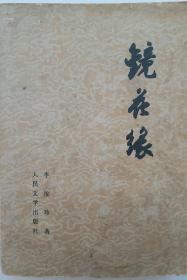 镜花缘
李汝珍著
人民文学出版社